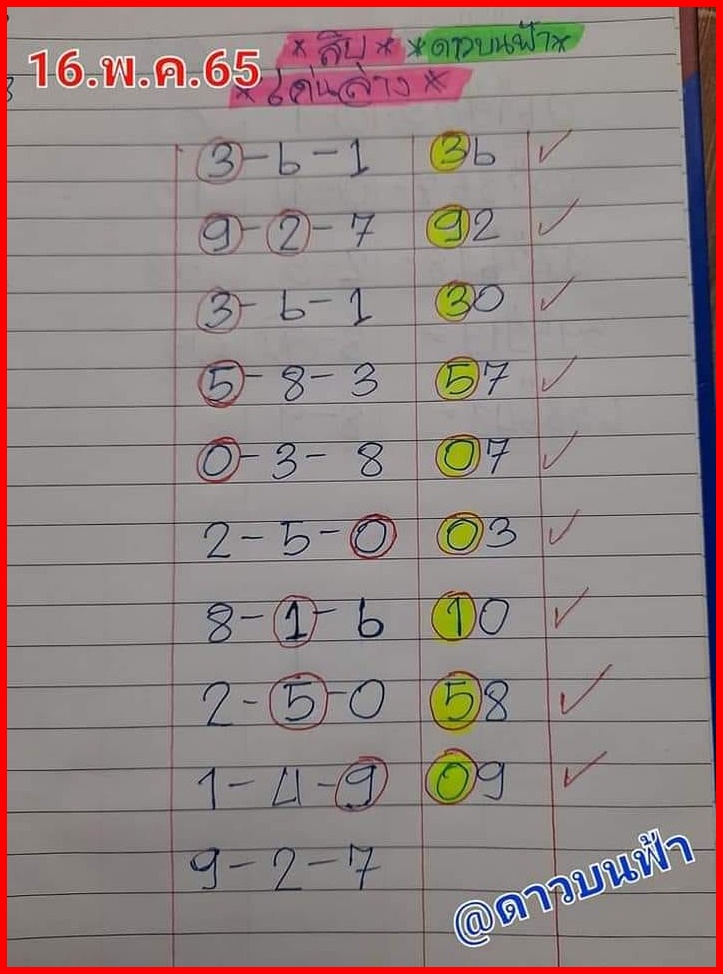 16.พ.ค.65
*สิบ* *ดาวบนฟ้า*
*เด่นล่าง*
3-6-1 36 ✓
9-2-7 92 ✓
3-6-1 30 ✓
5-8-3 57 ✓
0-3-8 07 ✓
2-5-0 03 ✓
8-1-6 10 ✓
2-5-0 58 ✓
1-4-9 09 ✓
9-2-7
@ดาวบนฟ้า